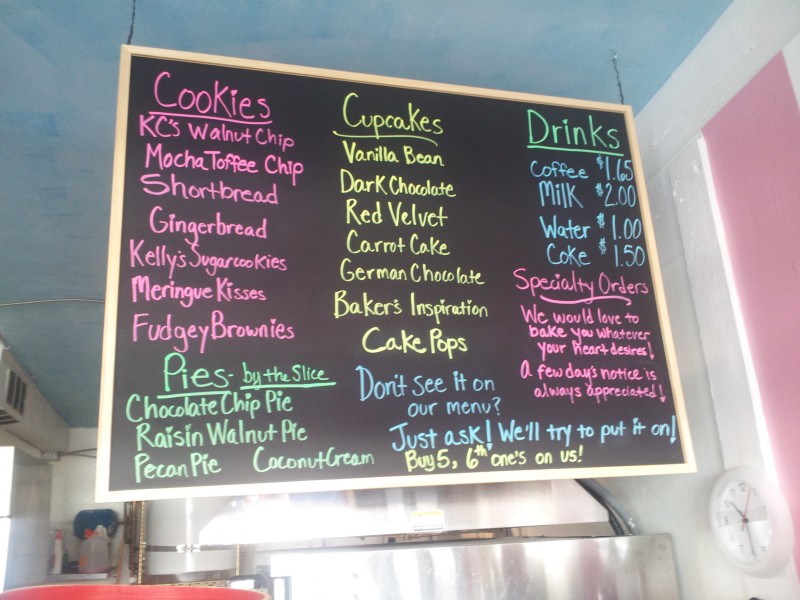 Cookies
KC's Walnut Chip
Mocha Toffee Chip
Shortbread
Gingerbread
Kelly's Sugarcookies
Meringue Kisses
Fudgey Brownies
Pies - by the Slice
Chocolate Chip Pie
Raisin Walnut Pie
Pecan Pie Coconut Cream
Cupcakes
Vanilla Bean
Dark Chocolate
Red Velvet
Carrot Cake
German Chocolate
Baker's Inspiration
Cake Pops
Drinks
Coffee $1.65
Milk $2.00
Water $1.00
Coke $1.50
Specialty Orders
We would love to
bake you whatever
your heart desires!
A few day's notice is
always appreciated!
Don't see it on
our menu?
Just ask! We'll try to put it on!
Buy 5, 6th one's on us!